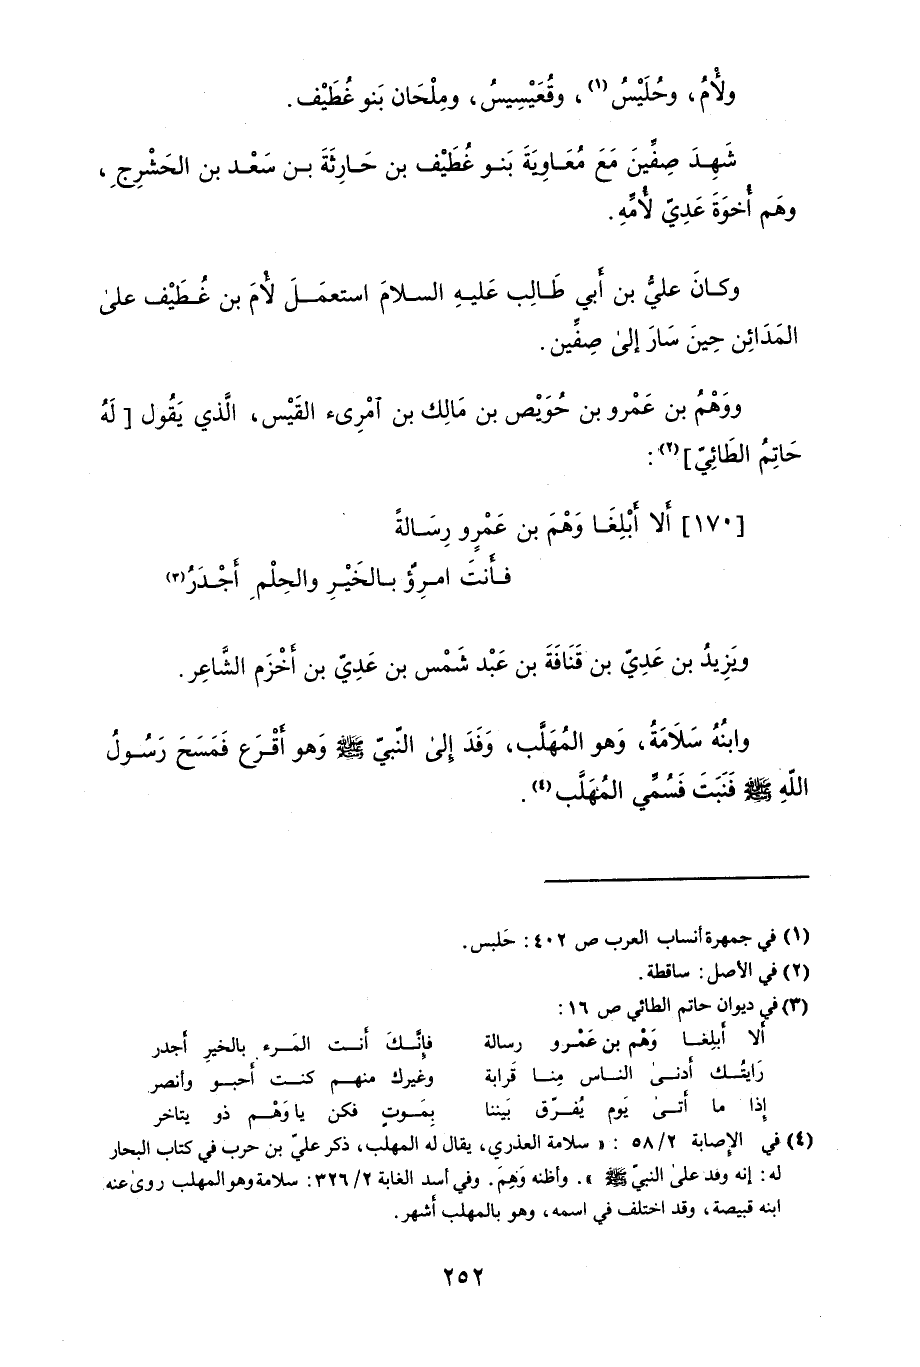 ولأْمُ، وحُلَيْسُ(١)، وقُعَيْسِيسُ، ومِلْحَان بَنو غُطَيْف.
شَهِدَ صِفِّينَ مَعَ مُعَاوِيَةَ بَنو غُطَيْف بن حَارِثَةَ بن سَعْد بن الحَشْرِجِ،
وهَم أُخوَةَ عَدِيّ لأُمِّهِ.
وكانَ عليُّ بن أَبي طَالِب عَليهِ السلامَ استعمَلَ لأْمَ بن غُطَيْف علىٰ
المَدَائِن حِينَ سَارَ إلىٰ صِفِّين.
ووَهْمُ بن عَمْرو بن حُوَيْص بن مَالِك بن ٱمْرِىء القَيْس، الَّذي يَقُول [لَهُ
حَاتِمُ الطَائِيّ](٢):
[١٧٠] أَلا أَبْلِغَا وَهْمَ بن عَمْرٍو رِسَالةً
فأَنتَ امرِؤٌ بالخَيْرِ والحِلْمِ أَجْدَرُ(٣)
ويَزِيدُ بن عَدِيّ بن قَنَافَةَ بن عَبْد شَمْس بن عَدِيّ بن أَخْزَم الشَّاعِر.
وابنُهُ سَلَامَةُ، وَهو المُهَلَّب، وَفَدَ إِلىٰ النَّبيّ ﷺ وَهو أَقْرَع فَمَسَحَ رَسُولُ
اللّهِ ﷺ فَنَبَتَ فَسُمِّي المُهَلَّب(٤).
(١) في جمهرة أنساب العرب ص ٤٠٢: حَلبس.
(٢) في الأصل: ساقطة.
(٣) في ديوان حاتم الطائي ص ١٦:
أَلا أَبلِغا وَهْم بن عَمْرو رسالة فإنَّكَ أنت المَرء بالخيرِ أجدر
رَايتُك أدنىٰ الناس مِنا قَرابة وغيرك منهم كنت أحبو وأنصر
إذا ما أتىٰ يَوم يُفرّق بَيننا بِمَوتٍ فكن يا وَهْم ذو يتاخر
(٤) في الإصابة ٥٨/٢: «سلامة العذري، يقال له المهلب، ذكر عليّ بن حرب في كتاب البحار
له: إنه وفد علىٰ النبيّ ﷺ». وأظنه وَهِمَ. وفي أسد الغابة ٣٢٦/٢: سلامة وهو المهلب روىٰ عنه
ابنه قبيصة، وقد اختلف في اسمه، وهو بالمهلب أشهر.
٢٥٢